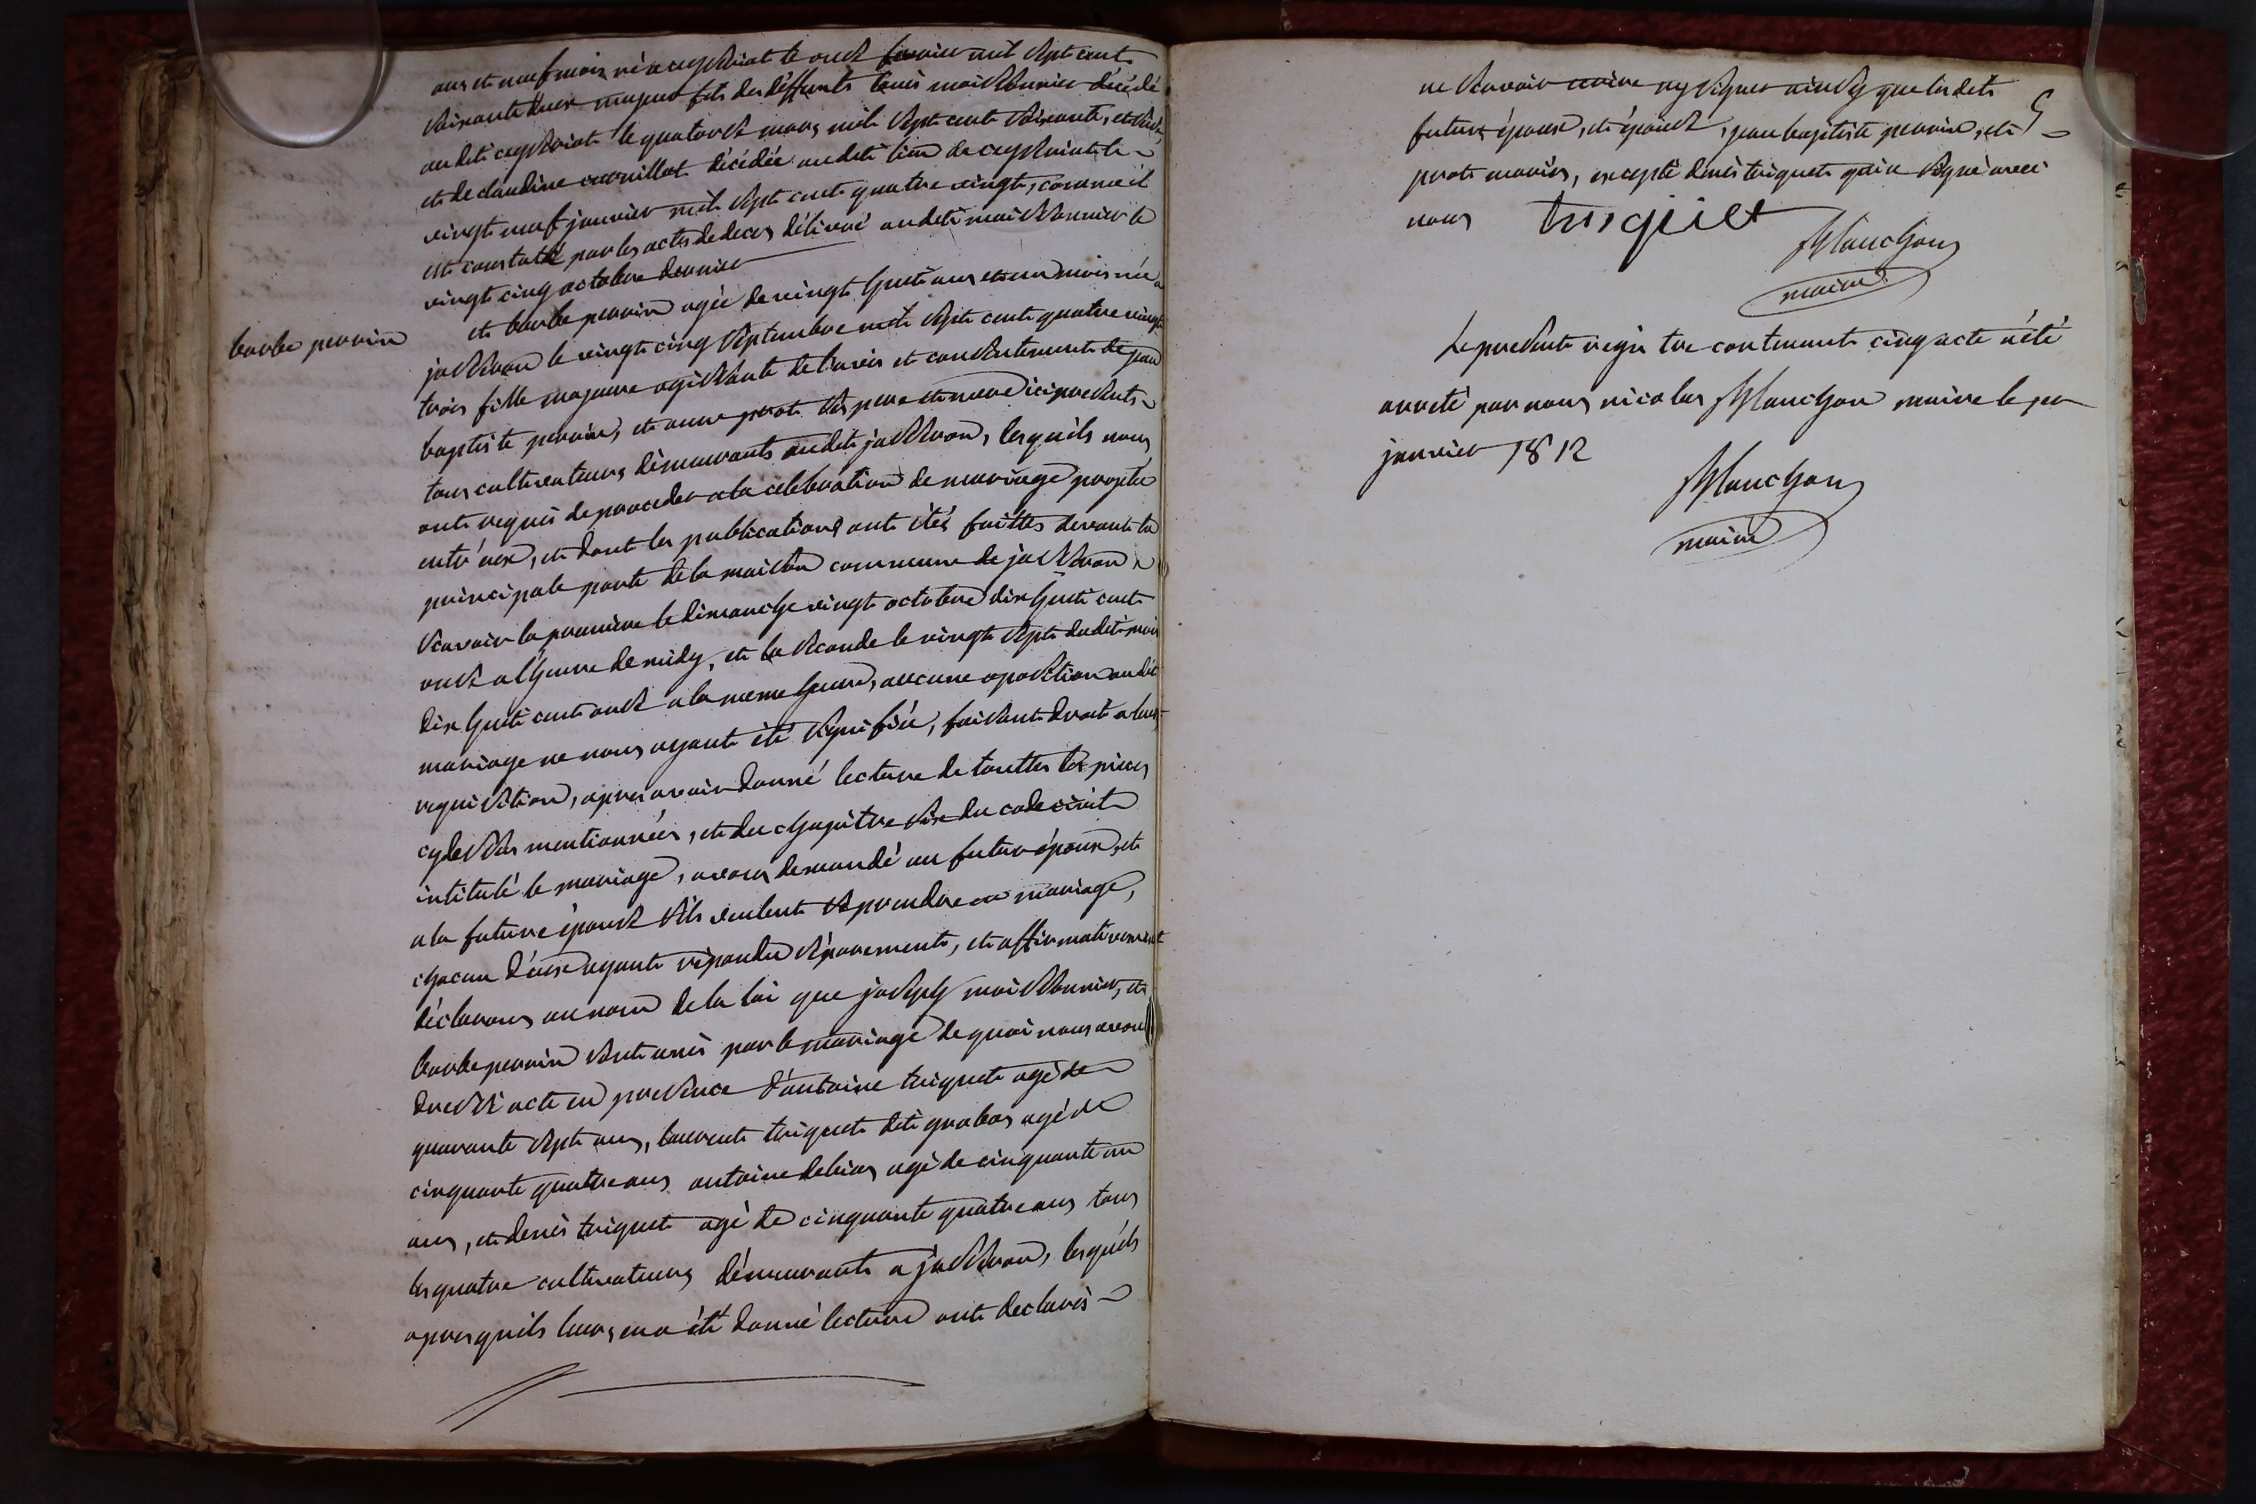 ans et neuf mois né a ceysseriat le onze fevrier mil sept cent
soixante deux majeur fils des deffunts louis moissonnier décédé
audit ceysseriat le quatorze mars mil sept cent soixante, et
et de claudine cornillot décédée audit lieu de ceysseriat le
vingt neuf janvier mil sept cent quatre vingt, comme il
est constaté par les actes de deces délivré audit moissonnier le
vingt cinq octobre dernier
barbe perrin
et barbe perrin agée de vingt huit ans et un mois née a
jasseron le vingt cinq septembre mil sept cent quatre vingt
trois fille majeure agissante de l'avis et consentement de jean
baptiste perrin, et anne perot ses pere et mere ici presents
tous cultivateurs démeurants audit jasseron, lesquils nous
ont requis de proceder a la celebration de mariage projetté
entr'eux, et dont les publications ont étés faittes devant la
principale porte de la maison commune de jasseron
scavoir la premiere le dimanche vingt octobre dix huit cent
onze a l'heure de midy, et la seconde le vingt sept dudit mois
dix huit cent onze a la meme heure, aucune oposition audit
mariage ne nous ayant été signifiée, faisant droit a leur
requisition, apres avoir donné lecture de touttes les pieces
cydessus mentionnées, et du chapitre six du code civil
intitulé le mariage, avons demandé au futur époux, et
a la future épouse s'ils veulent se prendre en mariage,
chacun d'eux ayant répondu séparement, et affirmativement
déclarons au nom de la loi que joseph moissonnier, et
barbe perrin sont unis par le mariage de quoi nous avons
dressé acte en presence d'antoine triquet agé de
quarante sept ans, laurent triquet dit grabos agé de
cinquante quatre ans antoine debias agé de cinquante un
ans, et denis triquet agé de cinquante quatre ans tous
les quatre cultivateurs démeurants a jasseron, lesquils
apres quils leurs en a été donné lecture ont declarés
ne scavoir ecrire ny signer ainsy que lesdits
futurs époux, et épouse, jean baptiste perrin, et
perot mariés, excepté denis triquet qui a signé avec
nous triquet
Planchon
maire
Le present registre contenant cinq acte a été
arreté par nous nicolas Planchon maire le per
janvier 1812
Planchon
maire